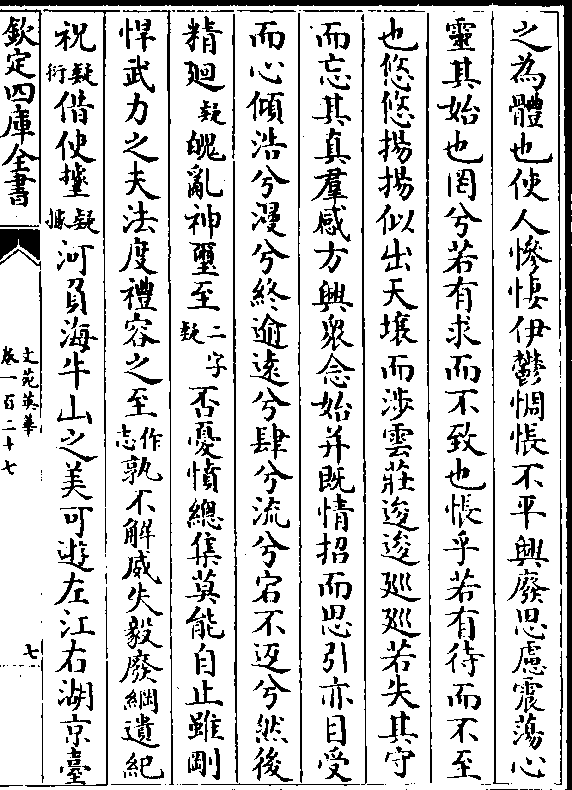 之為體也使人慘悽伊鬱惆悵不平興廢思慮震蕩心
靈其始也罔兮若有求而不致也悵乎若有待而不至
也悠悠揚揚似出天壤而涉雲莊逡逡廵廵若失其守
而忘其真羣感方興衆念始并既情招而思引亦目受
而心傾浩兮漫兮終逾遠兮肆兮流兮宕不返兮然後
精廻疑魄亂神璽至二字疑否憂憤總集莫能自止雖剛
悍武力之夫法度禮容之至作志孰不解威失毅廢綱遺紀
祝疑衍借使㨿疑據河負海牛山之美可遊左江右湖京臺
欽定四庫全書
文苑英華
卷一百二十七
七